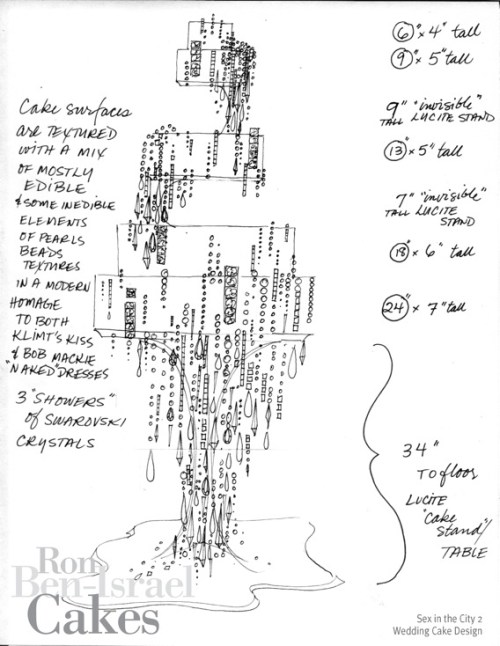 Cake surfaces
are TEXTURED
WITH A MIX
OF MOSTLY
EDIBLE
& SOME INEDIBLE
ELEMENTS
OF PEARLS
BEADS
TEXTURES
IN A MODERN
HOMAGE
TO BOTH
KLIMT'S KISS
& BOB MACKIE
"NAKED" DRESSES
3 "SHOWERS"
of SWAROVSKI
CRYSTALS
6" x 4" tall
9" x 5" tall
9" "invisible"
TALL LUCITE STAND
13 x 5" tall
7" "invisible"
TALL LUCITE
STAND
18" x 6" tall
24" x 7" tall
34"
TO floor
LUCITE
"Cake
stand"/
TABLE
Ron
Ben-Israel
Cakes
Sex in the City 2
Wedding Cake Design